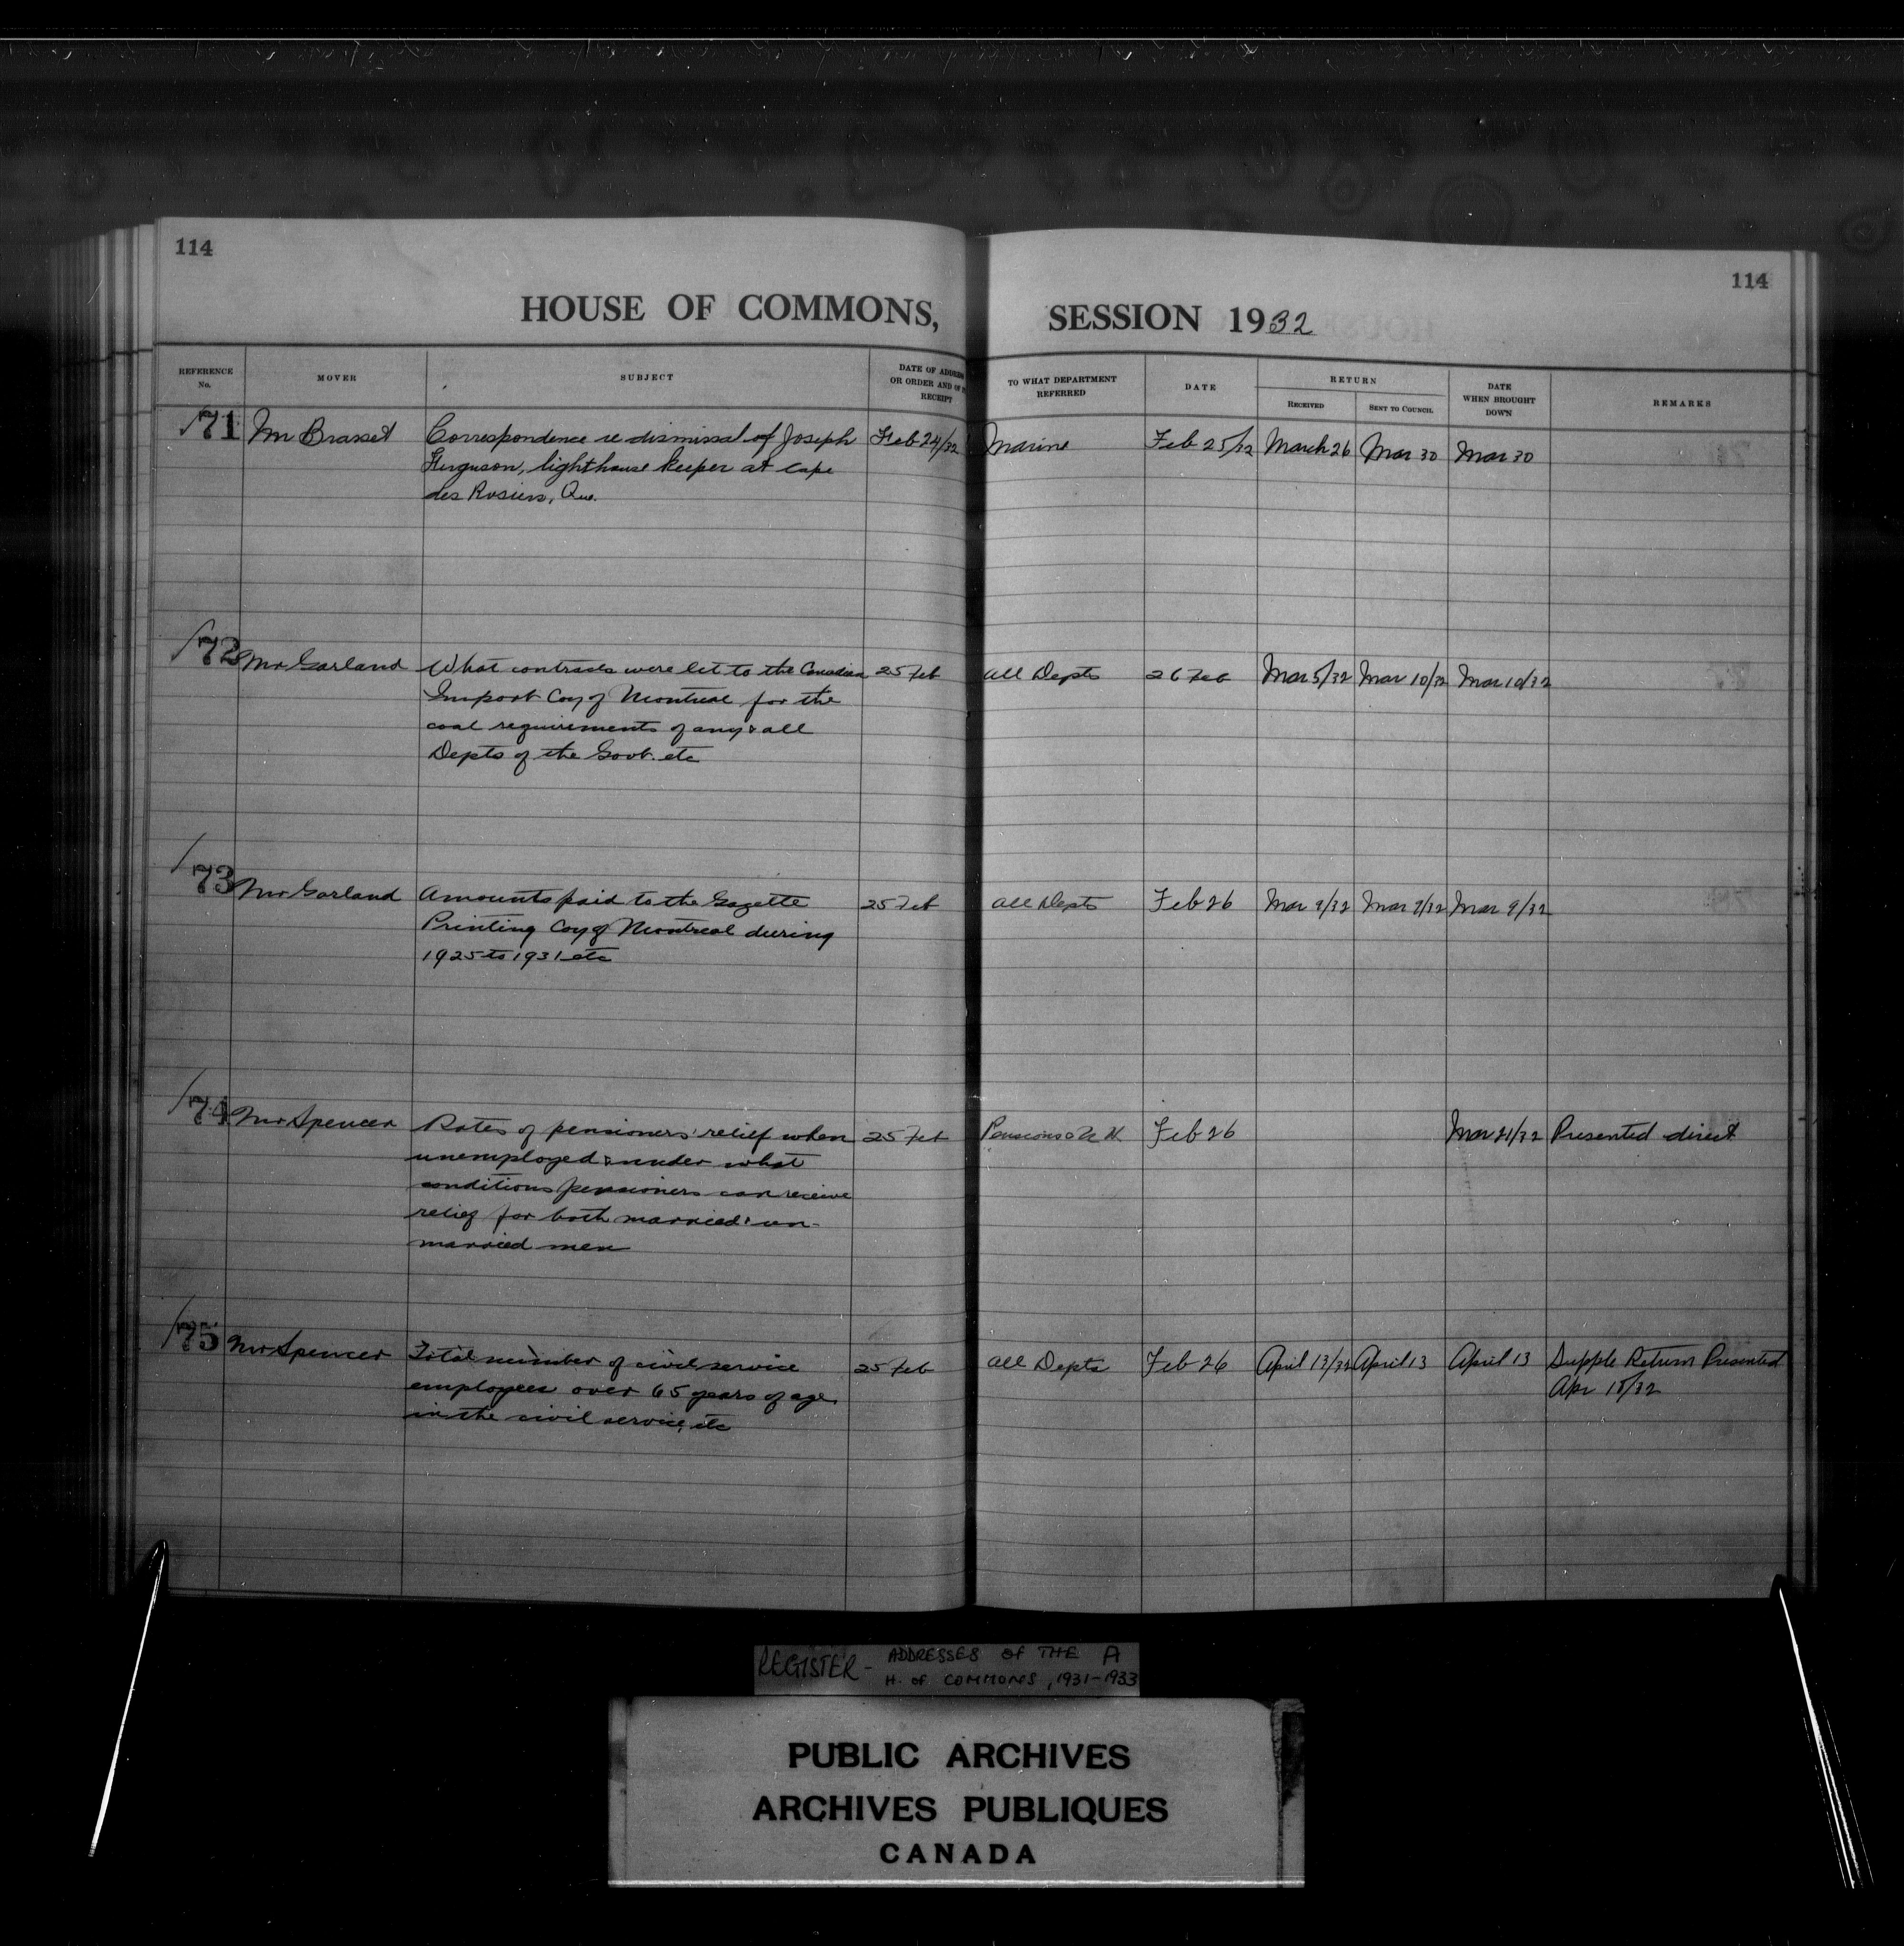 114
114
HOUSE OF COMMONS, SESSION 1932
REFERENCE No.
MOVER
SUBJECT
DATE OF ADDRESS OR ORDER AND OF RECEIPT
TO WHAT DEPARTMENT REFERRED
DATE
RETURN
RECEIVED
SENT TO COUNCIL
DATE WHEN BROUGHT DOWN
REMARKS
71 Mr Brasset Correspondence re dismissal of Joseph Feb 24/32 Marine Feb 25/32 March 26 Mar 30 Mar 30
Ferguson, lighthouse keeper at Cape
des Rosiers, Que.
72 Mr Garland What contracts were let to the Canadian 25 Feb all Depts 26 Feb Mar 5/32 Mar 10/32 Mar 10/32
Import Coy of Montreal for the
coal requirements of any & all
Depts of the Govt. etc
73 Mr Garland Amounts paid to the Gazette 25 Feb all Depts Feb 26 Mar 9/32 Mar 9/32 Mar 9/32
Printing Coy of Montreal during
1925 to 1931 etc
74 Mr Spencer Rates of pensioners' relief when 25 Feb Pensions & N H Feb 26 Mar 21/32 Presented direct
unemployed & under what
conditions pensioners can receive
relief for both married & un-
married men
75 Mr Spencer Total number of civil service 25 Feb all Depts Feb 26 April 13/32 April 13 April 13 Supple Return Presented
employees over 65 years of age Apr 18/32
in the civil service, etc
REGISTER - ADDRESSES OF THE A
H. OF COMMONS, 1931-1933
PUBLIC ARCHIVES
ARCHIVES PUBLIQUES
CANADA